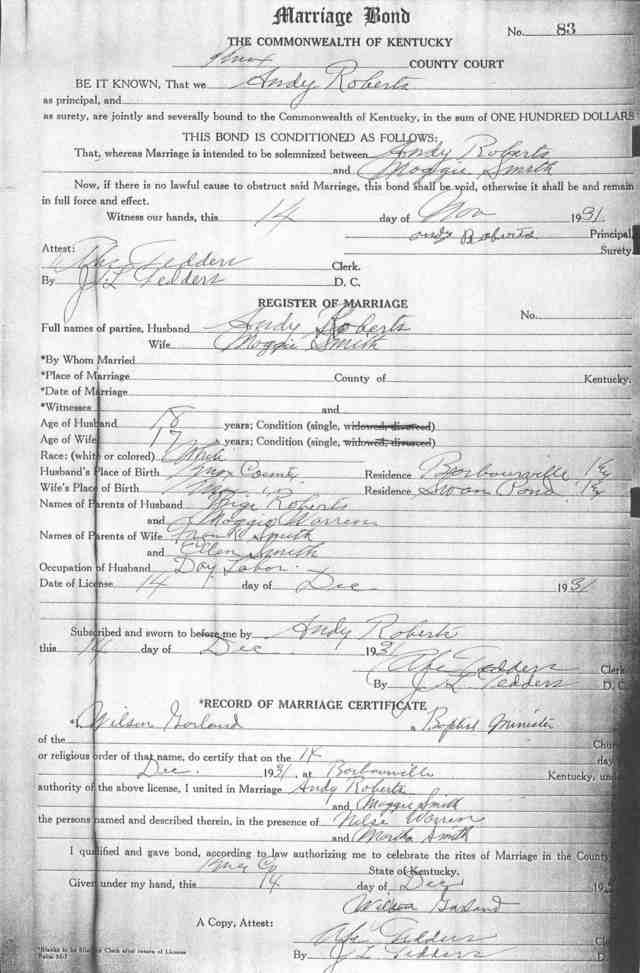 Marriage Bond
No. 83
THE COMMONWEALTH OF KENTUCKY
Knox COUNTY COURT
BE IT KNOWN, That we Andy Roberts
as principal, and
as surety, are jointly and severally bound to the Commonwealth of Kentucky, in the sum of ONE HUNDRED DOLLARS
THIS BOND IS CONDITIONED AS FOLLOWS:
That, whereas Marriage is intended to be solemnized between Andy Roberts
and Maggie Smith
Now, if there is no lawful cause to obstruct said Marriage, this bond shall be void, otherwise it shall be and remain
in full force and effect.
Witness our hands, this 14 day of Nov 1931.
Andy Roberts Principal
Surety
Attest:
Abe Tedders Clerk.
By J. L. Tedders D. C.
REGISTER OF MARRIAGE
No.
Full names of parties, Husband Andy Roberts
Wife Maggie Smith
*By Whom Married
*Place of Marriage County of Kentucky.
*Date of Marriage
*Witnesses and
Age of Husband 18 years; Condition (single, widowed, divorced)
Age of Wife 17 years; Condition (single, widowed, divorced)
Race: (white or colored) White
Husband's Place of Birth Knox County Residence Barbourville Ky
Wife's Place of Birth Residence Swan Pond Ky
Names of Parents of Husband Roberts
and Maggie Warren
Names of Parents of Wife Frank Smith
and Ellen Smith
Occupation of Husband Day Labor.
Date of License 14 day of Dec 1931
Subscribed and sworn to before me by Andy Roberts
this 14 day of Dec 1931
Abe Tedders Clerk
By J. L. Tedders D. C.
*RECORD OF MARRIAGE CERTIFICATE
*Wilson Garland a Baptist Minister
of the Church
or religious order of that name, do certify that on the 14 day
Dec. 1931, at Barbourville Kentucky, under
authority of the above license, I united in Marriage Andy Roberts
and Maggie Smith
the persons named and described therein, in the presence of Warren
and Martha Smith
I qualified and gave bond, according to law authorizing me to celebrate the rites of Marriage in the County
Knox Co State of Kentucky.
Given under my hand, this 14 day of Dec, 193
Wilson Garland
A Copy, Attest:
Abe Tedders Cl
By J L Tedders D.
*Blanks to be filled by Clerk after return of License